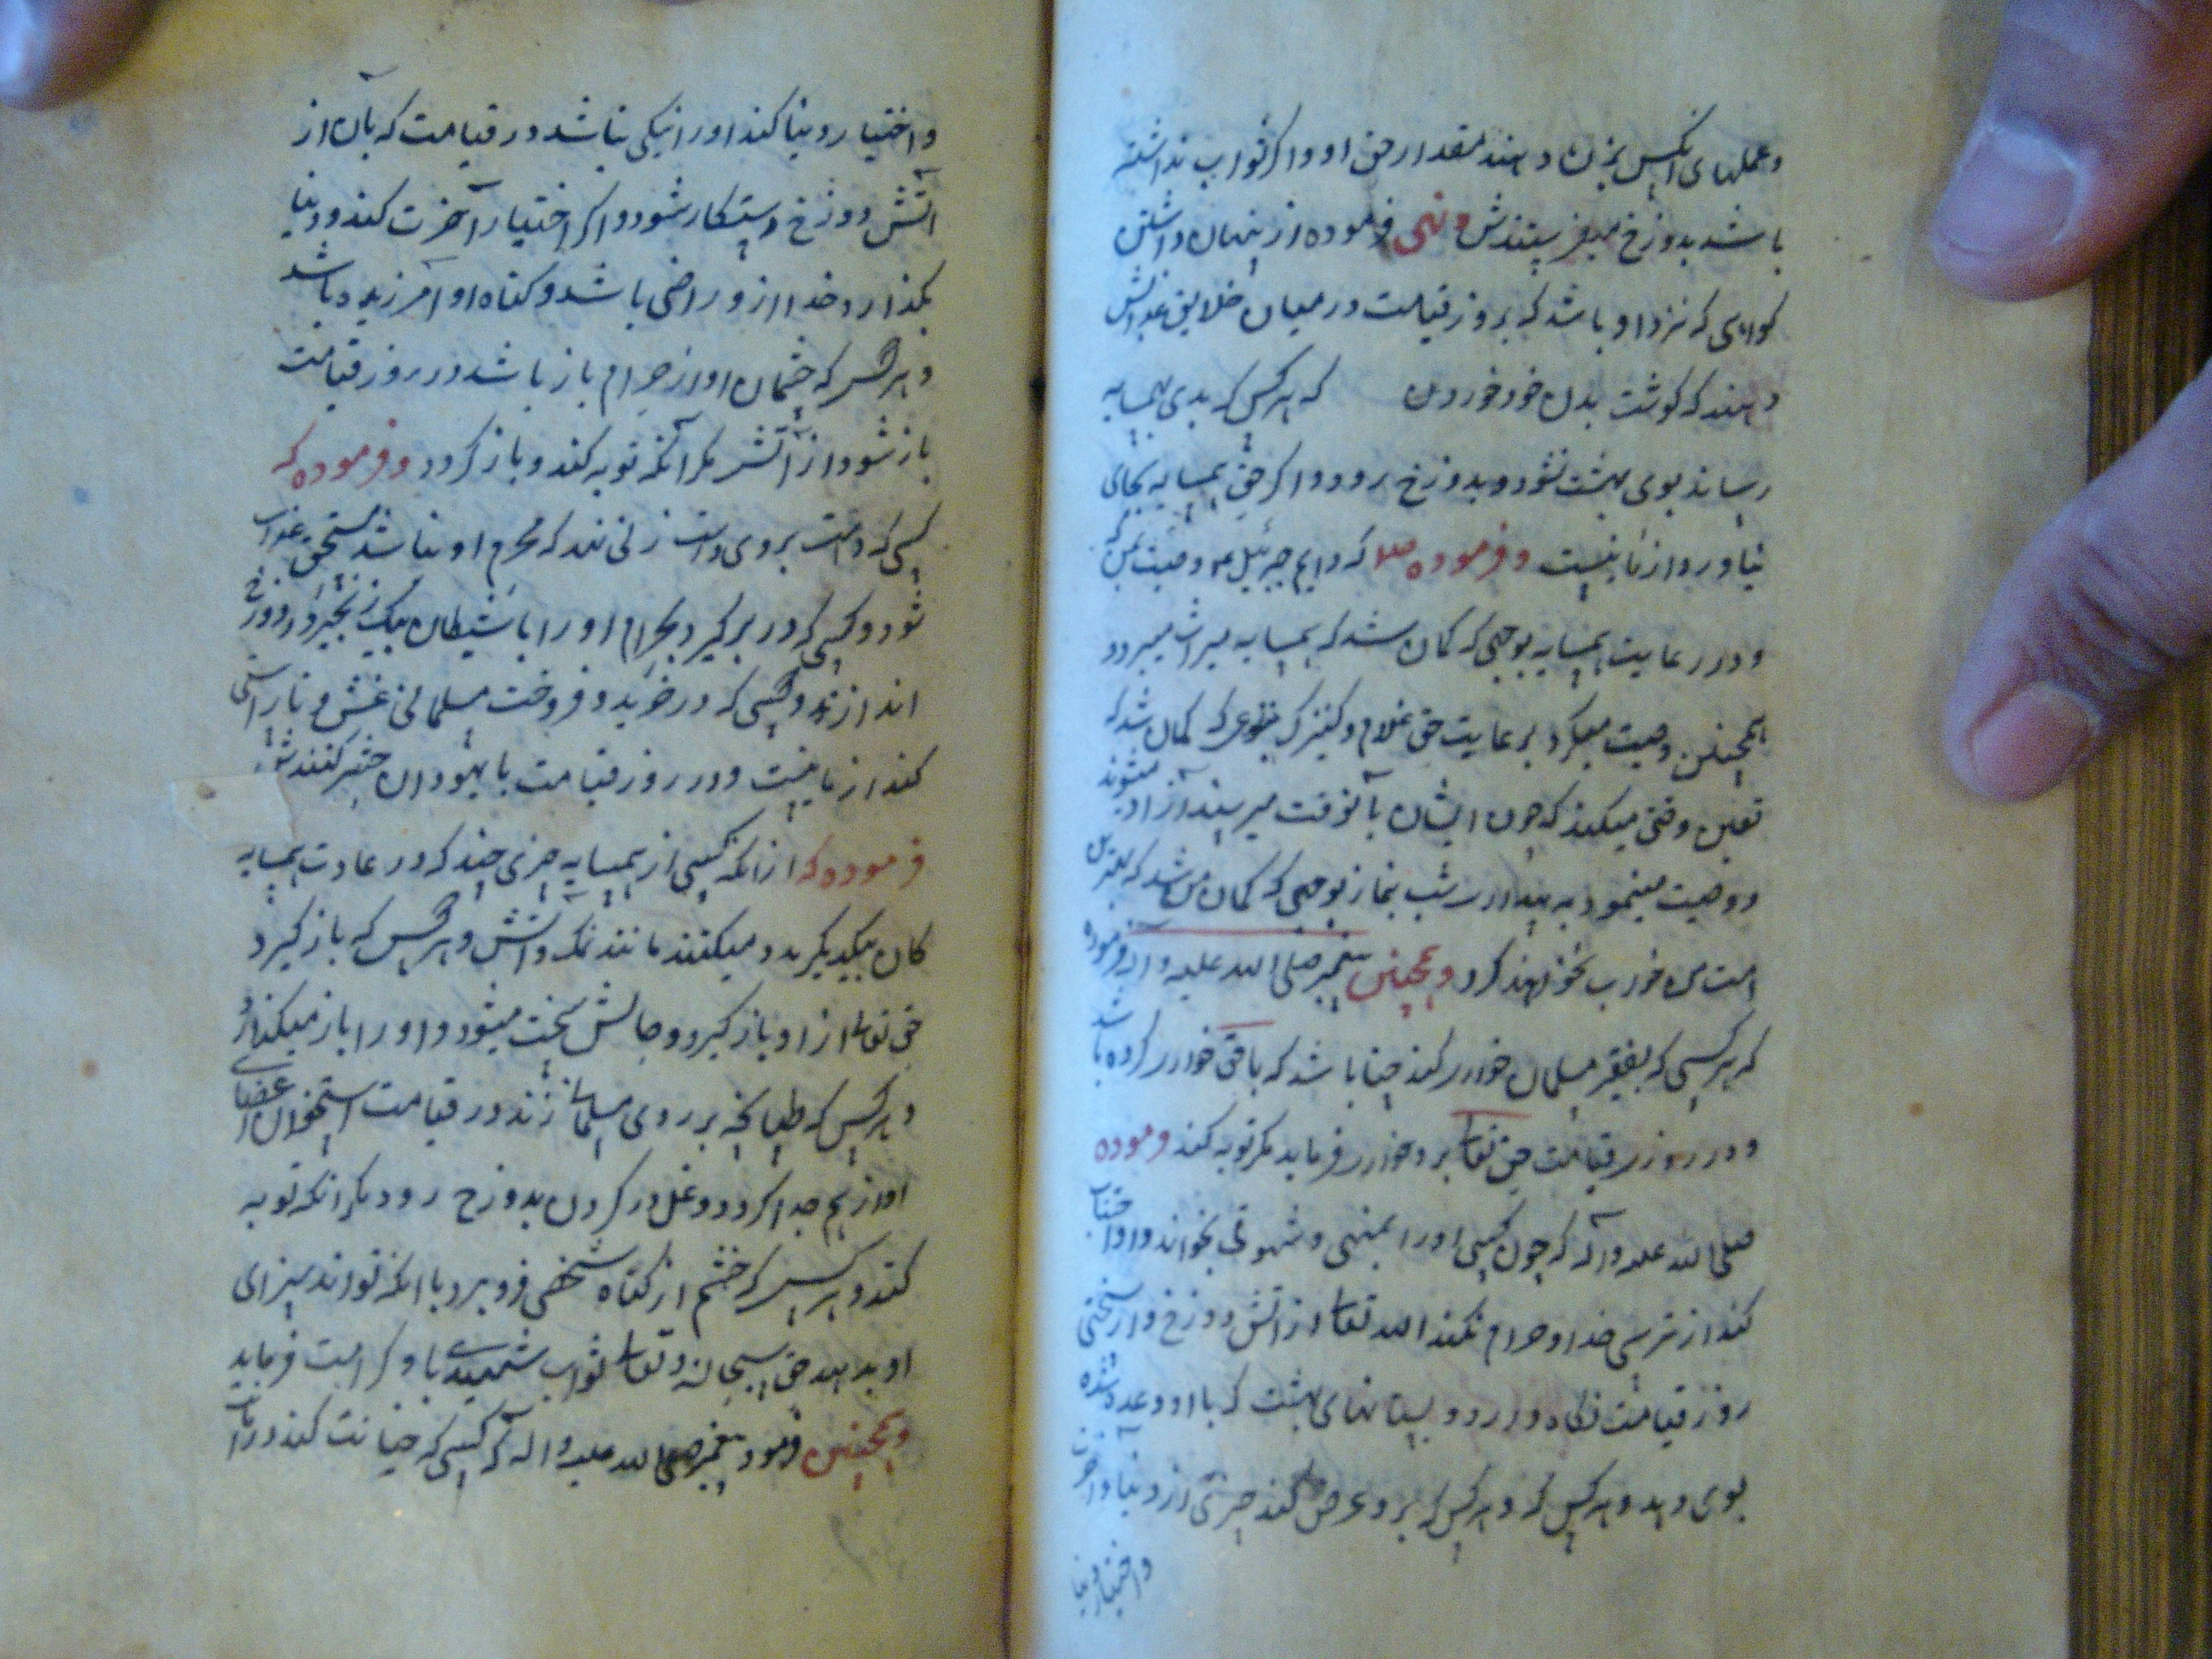 وعملهای آنکس بزن دهند مقدار حق او و اکر ثواب نداشته
باشد بدوزخ میفرستندش ونهی فرموده از پنهان داشتن
کواهی که نزد او باشد که بروز قیامت در میان خلایق عذابش
دهند که کوشت بدن خود خوردن که هرکس که بدی بهمسایه
رساند بوی بهشت نشنود و بدوزخ رود و اکر حق همسایه بجای
نیاورد از ما نیست وفرموده صلا که دایم جبرئیل ع وصیت بمن که
ودر رعایت همسایه بوجهی که کمان شد که همسایه میراث میبرد و
همچنین وصیت میکرد برعایت حق غلام وکنیزک بنوعی که کمان شد که
تعین وقتی میکند که چون ایشان بآنوقت میرسند آزاد میشوند
ووصیت مینمود به بیدار شب بنماز بوجهی که کمان من شد که بهترین
امت من خواب نخواهند کرد وهمچنین پیغمبر صلی الله علیه وآله فرموده
که هرکسی که بفقیر مسلمان خواری کند چنان باشد که باحق خواری کرده باشد
ودر روز قیامت حق تعالی برو خواری فرماید مکر توبه کند وفرموده
صلی الله علیه وآله که چون کسی اورا بمنهی وشهوتی بخواند واو اجتناب
کند از ترس خدا و حرام نکند الله تعالی از آتش دوزخ واز سختی
روز قیامت نکاه دارد و بستانهای بهشت که بااو وعده شده
بوی دهد وهرکس که وهرکس که برو عرض کند چیزی از دنیا وآخرت
واختیار دنیا
واختیار دنیا کند اورا نیکی نباشد در قیامت که بآن از
آتش دوزخ رستکار شود واکر اختیار آخرت کند ودنیا
بکذارد خدا ازو راضی باشد وکناه او آمرزیده باشد
وهرکس که چشمان او از حرام باز باشد در روز قیامت
باز شود از آتش مکر آنکه توبه کند وباز کردد وفرموده که
کسی که دست بروی دست زنی نهد که محرم او نباشد مستحق عذاب
شود وکسی که در بر کیرد بحرام اورا باشیطان بیک زنجیر در دوزخ
اندازند وکسی که در خرید وفروخت مسلمانی غش وناراستی
کند از ما نیست ودر روز قیامت با یهودان حشر کنندش
فرموده که ازانکه کسی از همسایه چیزی چند که در عادت همسایه
کان بیکدیکر مدد میکنند مانند نمک وآتش وهرکس که باز کیرد
حق تعالی ازاو باز کیرد وحالش سخت میشود واورا باز میکذارد
وهرکس که طپانچه برروی مسلمان زند در قیامت استخوان اعضای
او از هم جدا کردد وغل در کردن بدوزخ رود مکر انکه توبه
کند وهرکس که خشم از کناه شخصی فرو برد با انکه تواند سزای
او بدهد حق سبحانه وتعالی ثواب شهیدی باو کرامت فرماید
وهمچنین فرمود پیغمبر صلی الله علیه واله که کسی که خیانت کند در امانت